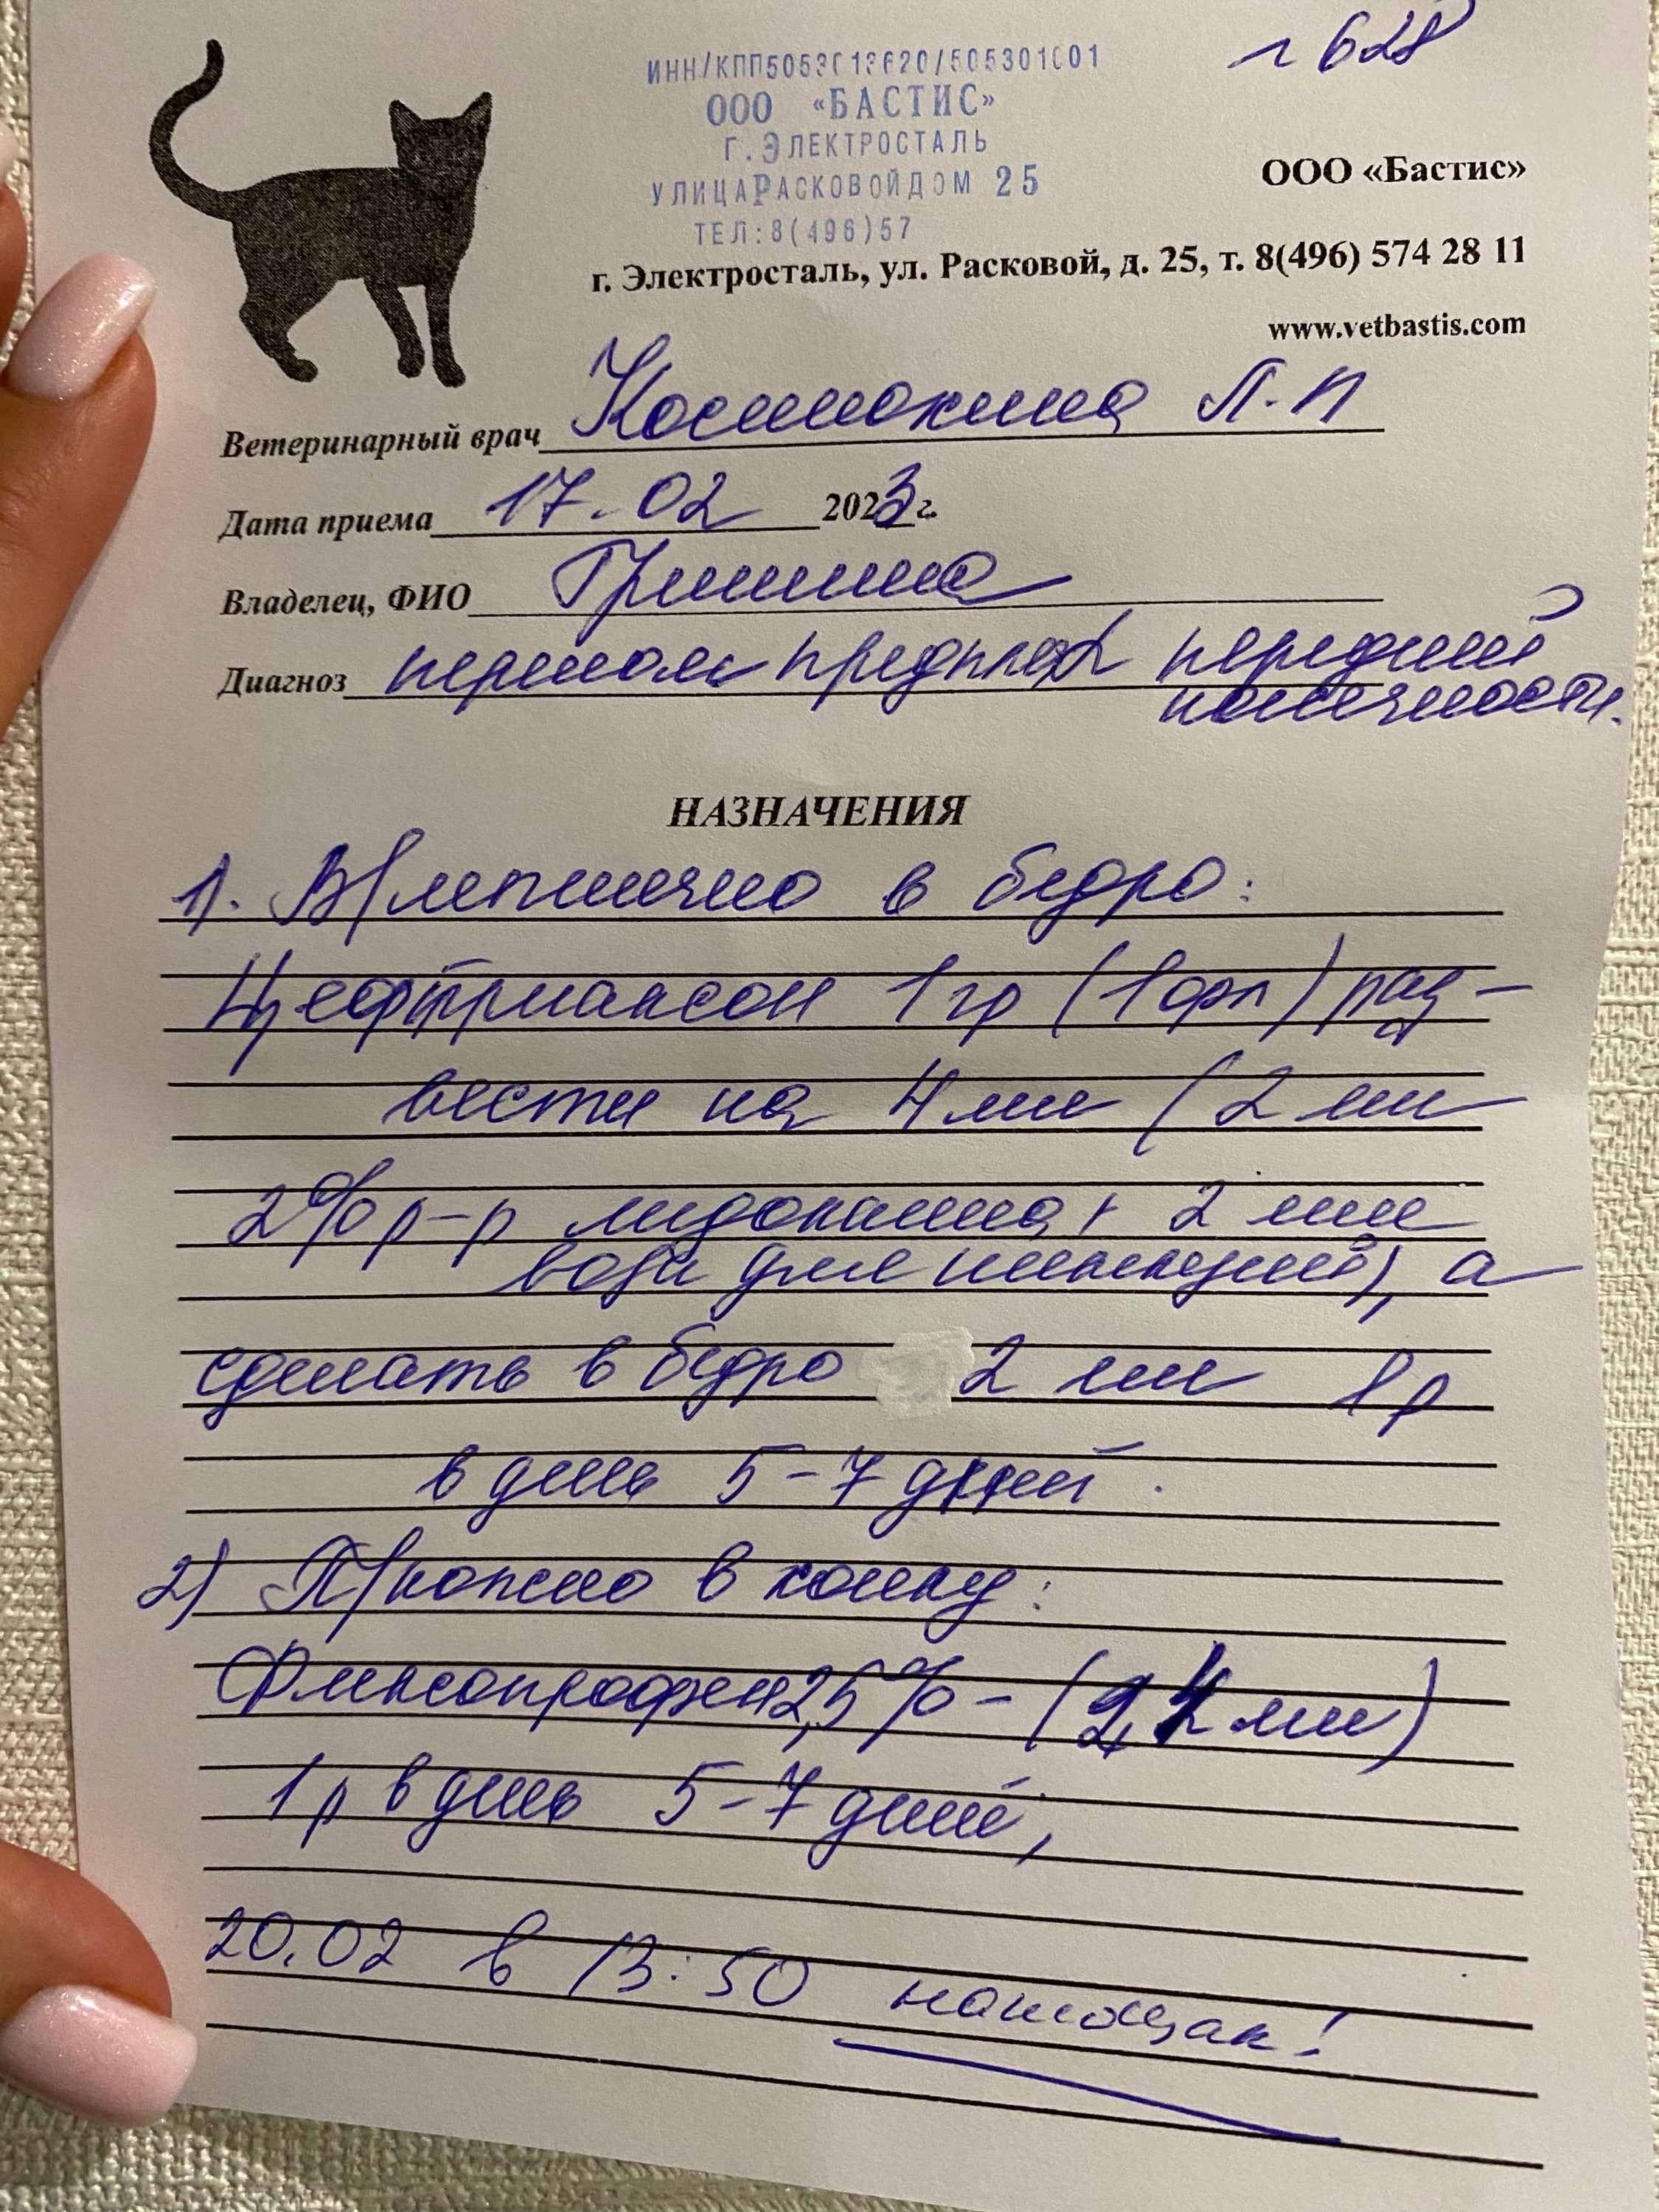 г 628
ИНН/КПП5053013620/505301001
ООО «БАСТИС»
Г.ЭЛЕКТРОСТАЛЬ
УЛИЦАРАСКОВОЙДОМ 25
ТЕЛ:8(496)57
ООО «Бастис»
г. Электросталь, ул. Расковой, д. 25, т. 8(496) 574 28 11
www.vetbastis.com
Ветеринарный врач Л.П
Дата приема 17.02 2023 г.
Владелец, ФИО Гришина
Диагноз перелом предплеч передней
конечности.
НАЗНАЧЕНИЯ
1). В/мышечно в бедро:
Цефтриаксон 1 гр (1фл) раз-
вести на 4 мл (2 мл
2% р-р лидокаина + 2 мл
воды для инъекций), а
сделать в бедро 2 мл 1 р
в день 5-7 дней.
2) П/кожно в холку:
Флексопрофен 2,5% - (2,4 мл)
1 р в день 5-7 дней,
20.02 в 13:50 натощак!